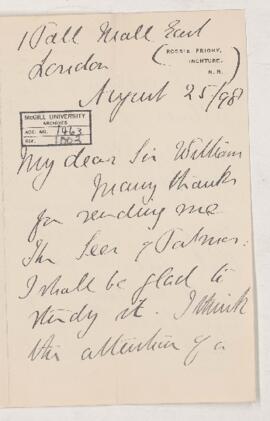 1 Pall Mall East
ROSSIE PRIORY,
INCHTURE,
N. B.
London
August 25/98
McGILL UNIVERSITY
ARCHIVES
ACC. NO. 1463
REF. 1003
My dear Sir William
Many thanks
for sending me
The Seer of Patmos:
I shall be glad to
study it. I think
the attention of a